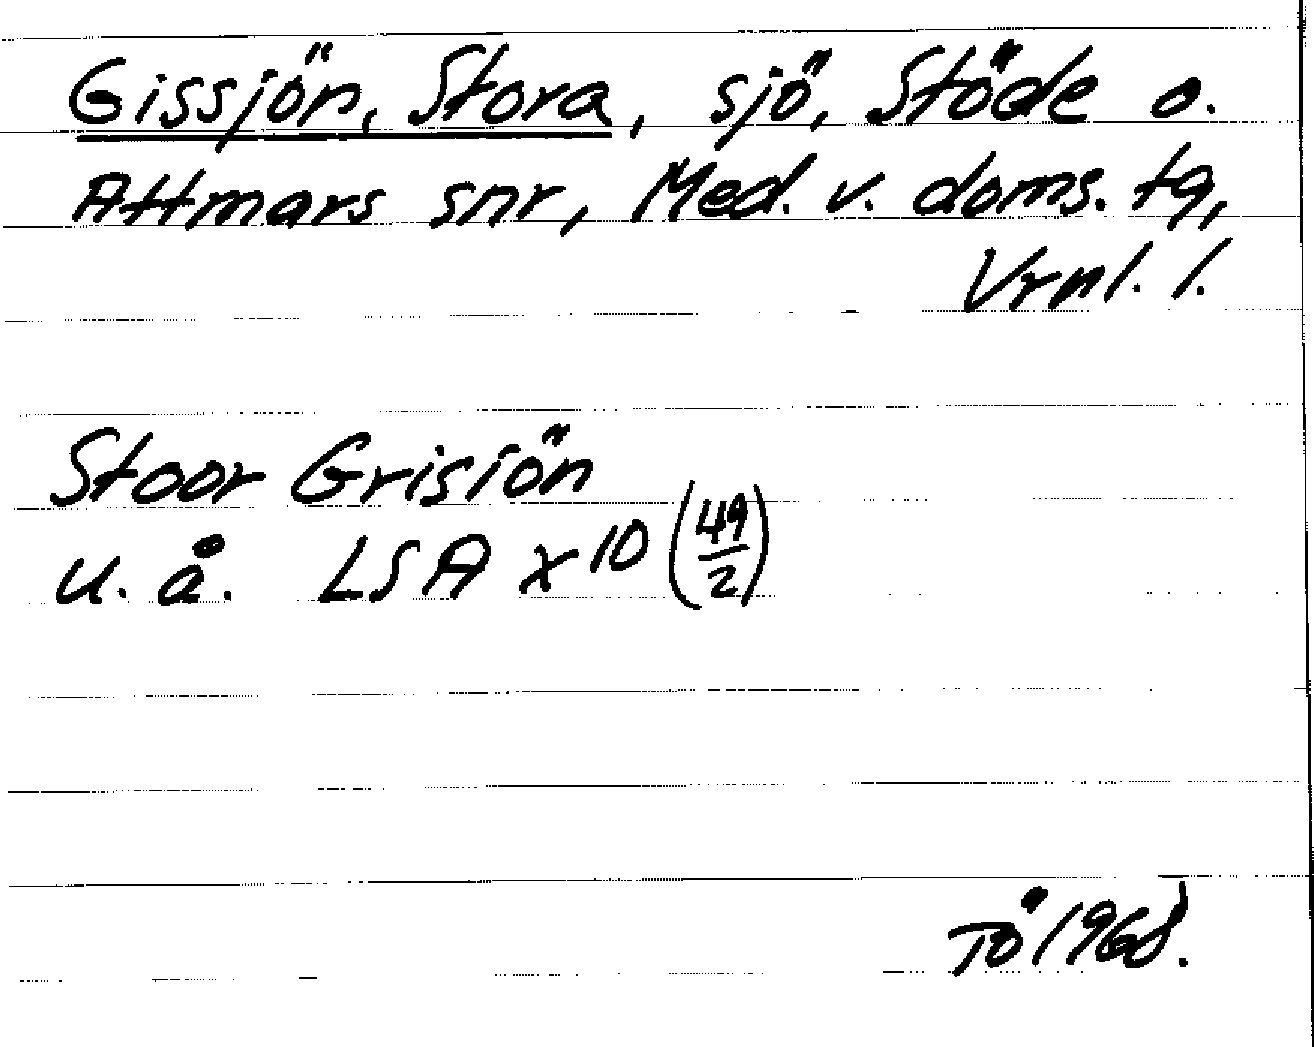 Gissjön, Stora, sjö, Stöde o.
Attmars snr, Med. v. doms. tg,
Vrnl. l.
Stoor Grisiön
u. å. LSA X 10 (49/2)
TÖ 1968.